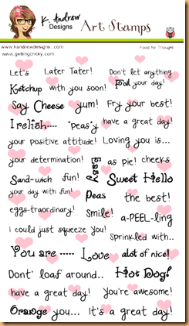 K. Andrew Designs Art Stamps
www.kandrewdesigns.com Food for Thought
www.gettingtricky.com
Let's Later Tater! Don't let anything
Ketchup with you soon! Foul your day!
Say Cheese yum! Fry your best!
I relish.... 'peas'y have a great day!
your positive attitude! Loving you is...
your determination! Easy as pie! cheeks
Sand-wich fun! Sweet Hello
your day with fun! Peas the best!
eggs-traordinary! Smile! a-PEEL-ing
I could just squeeze You! Sprinkled with..
You are ..... Love alot of nice!
Dont' loaf around.. Hot Dog!
have a great day! You're awesome!
Orange you... It's a great day!